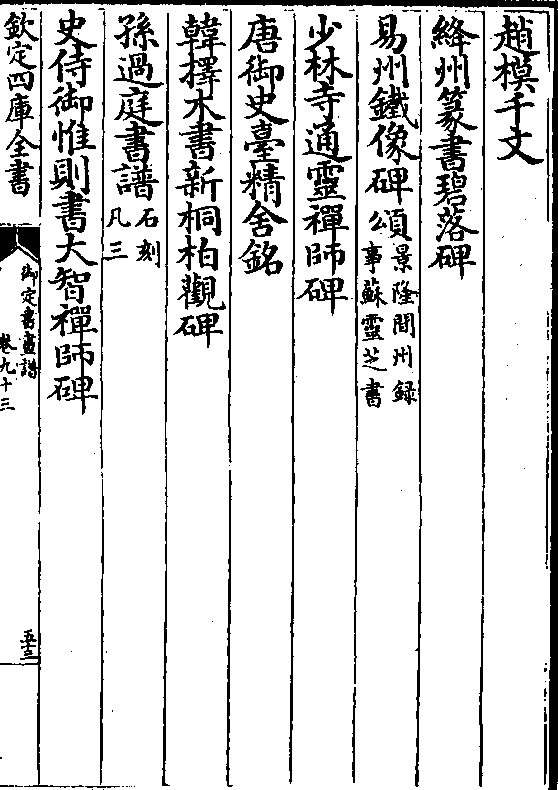 趙模千文
絳州篆書碧落碑
易州鐵像碑頌景隆間州録
事蘇靈芝書
少林寺通靈禪師碑
唐御史臺精舍銘
韓擇木書新桐柏觀碑
孫過庭書譜石刻
凡三
史侍御惟則書大智禪師碑
欽定四庫全書
御定書畫譜
卷九十三
五十三